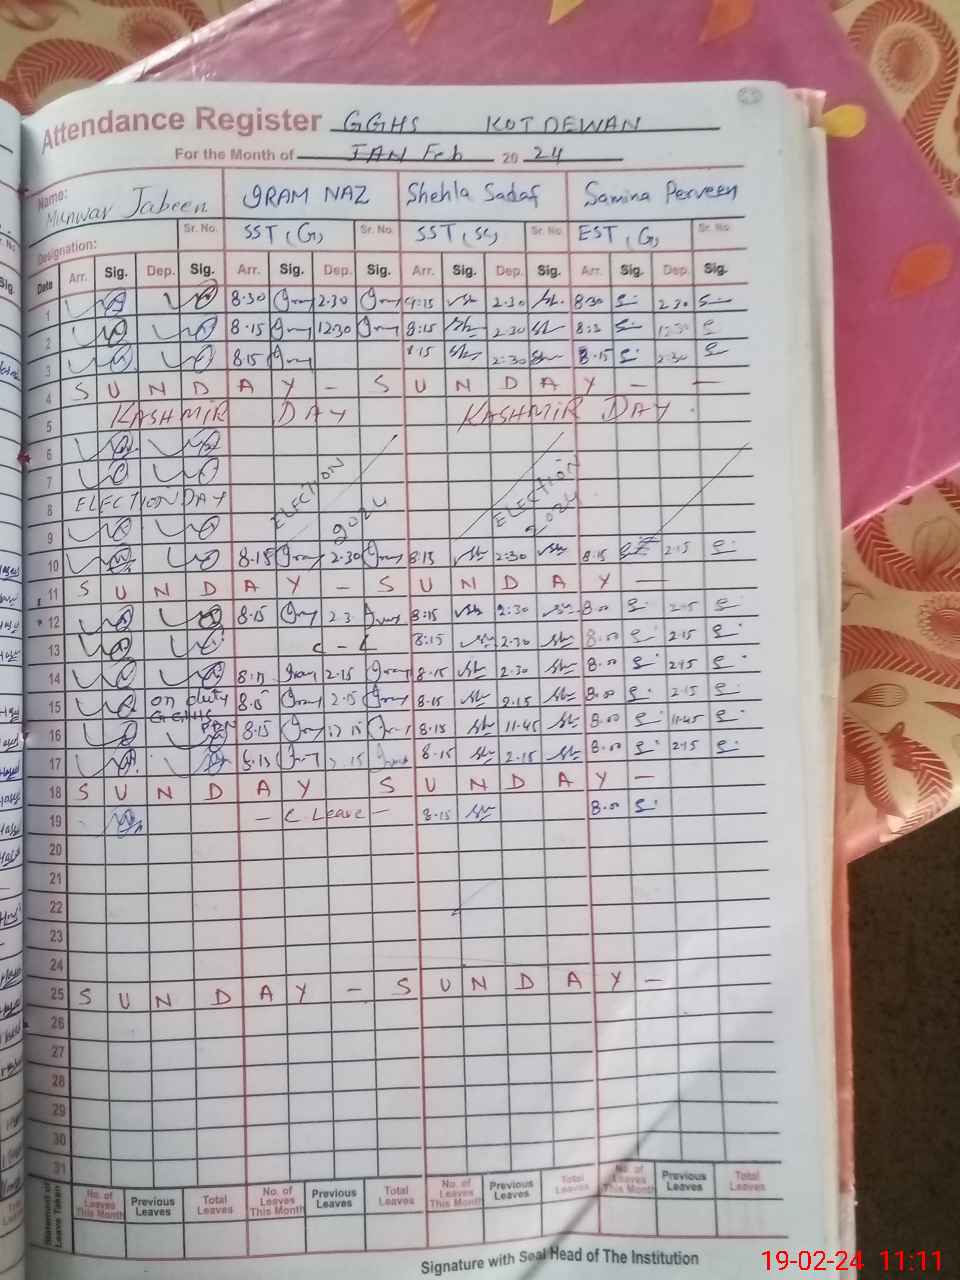 Attendance Register GGHS KOT DEWAN
For the Month of JAN Feb 20 24
Name: Munwar Jabeen IRAM NAZ Shehla Sadaf Samina Perveen
Designation: Sr. No. SST (G) Sr. No. SST (Sc) Sr. No. EST (G) Sr. No.
Date Arr. Sig. Dep. Sig. Arr. Sig. Dep. Sig. Arr. Sig. Dep. Sig. Arr. Sig. Dep. Sig.
1 8.30 2.30 9:15 2.30 8:30 2.30
2 8.15 12.30 8:15 2:30 8:3 12:30
3 8.15 8.15 2:30 8.15 2:30
4 S U N D A Y - S U N D A Y - -
5 KASHMIR DAY KASHMIR DAY.
6
7
8 ELECTION DAY ELECTION 2024 ELECTION 2024
9
10 8.15 2.30 8:15 2:30 8.15 2.15
11 S U N D A Y - S U N D A Y -
12 8.15 2.3 8:15 2:30 8.00 2.15
13 C - L 8:15 2.30 8.00 2.15
14 8.15 2.15 8.15 2.30 8.00 2.15
15 on duty GGHS 8.15 2.15 8.15 2.15 8.00 2.15
16 8.15 8.15 11.45 8.00 11.45
17 8.15 8.15 2.15 8.00 2.15
18 S U N D A Y S U N D A Y -
19 - C Leave - 8.15 8.00
20
21
22
23
24
25 S U N D A Y - S U N D A Y -
26
27
28
29
30
31
Statement of Leave Taken No. of Leaves This Month Previous Leaves Total Leaves No. of Leaves This Month Previous Leaves Total Leaves No. of Leaves This Month Previous Leaves Total Leaves No. of Leaves This Month Previous Leaves Total Leaves
Signature with Seal Head of The Institution
19-02-24 11:11